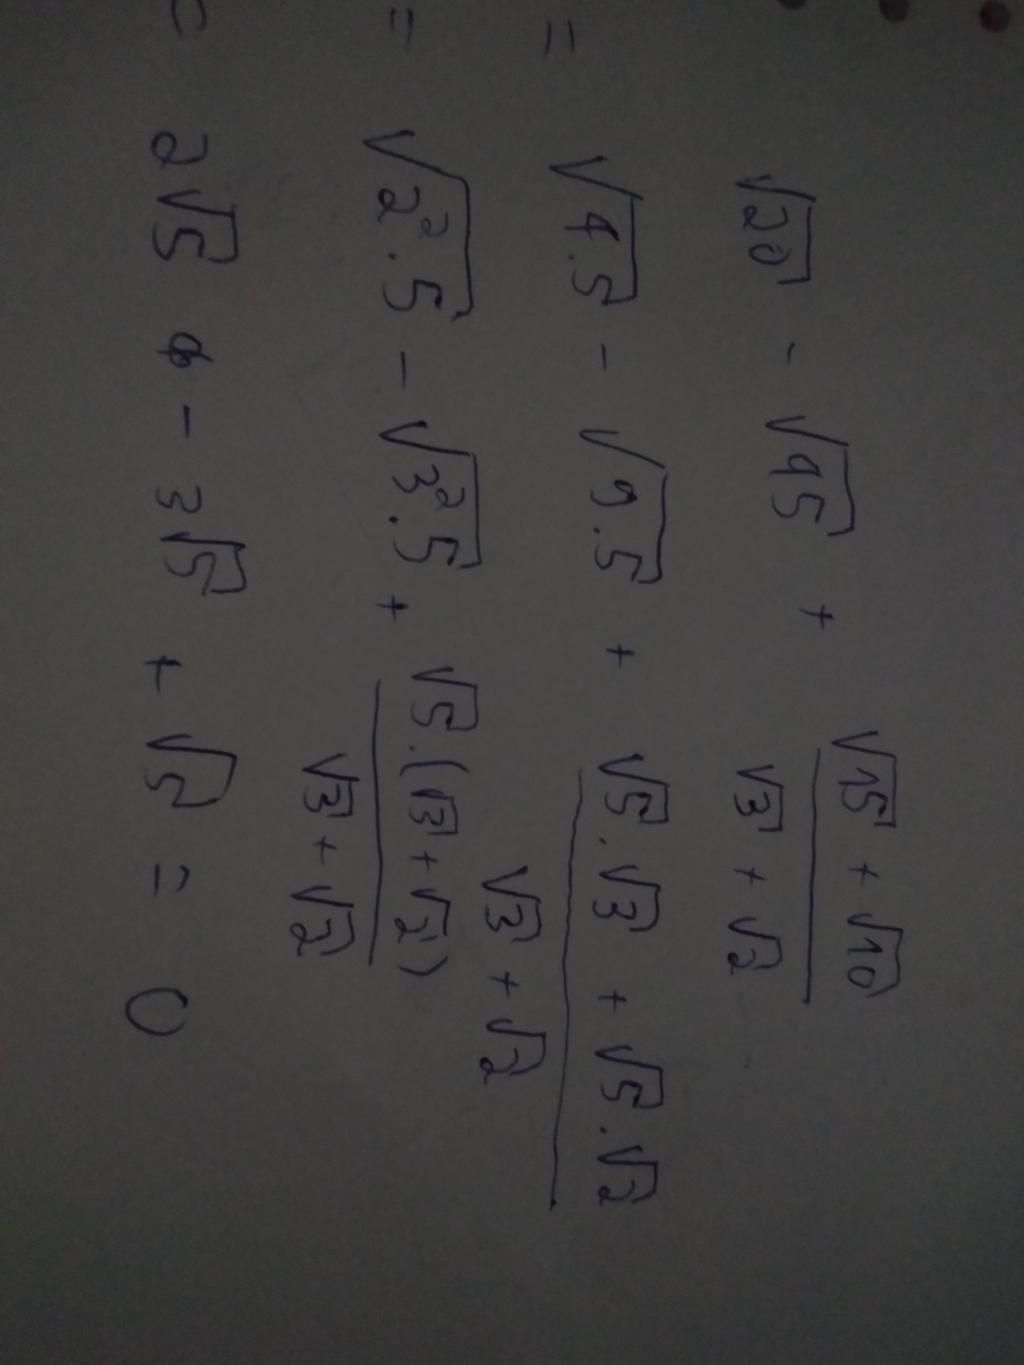 √20 - √45 + (√15 + √10)/(√3 + √2)
= √4.5 - √9.5 + (√5.√3 + √5.√2)/(√3 + √2)
= √2².5 - √3².5 + (√5.(√3 + √2))/(√3 + √2)
= 2√5 - 3√5 + √5 = 0